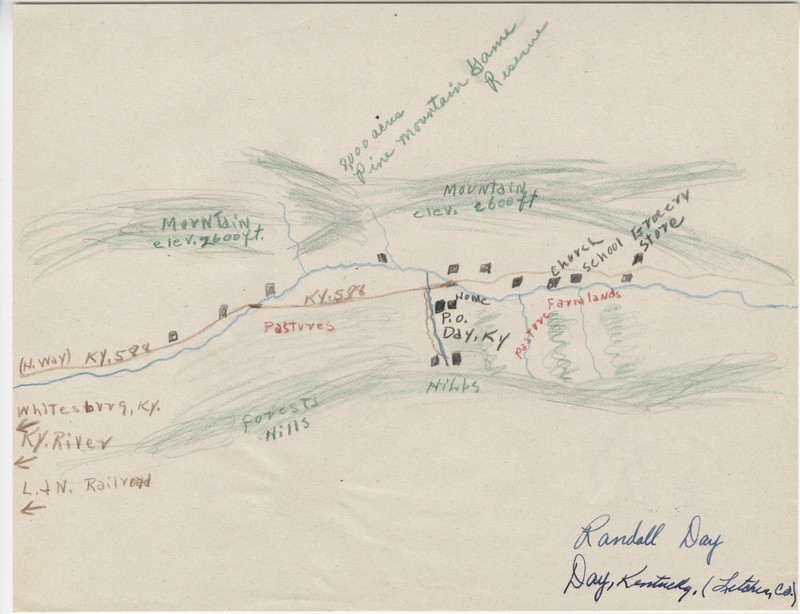 8,000 acres
Pine Mountain Game
Reserve
Mountain
elev. 2600ft
Mountain
elev. 2600ft.
Church
School
Grocery
Store
KY. 588
Home
Farmlands
Pastures
Pasture
P.O.
Day, Ky
(H. Way) KY. 588
Hills
Whitesburg, KY.
Forests
Hills
Ky. River
L. & N. Railroad
Randall Day
Day, Kentucky. (Letcher, Co.)